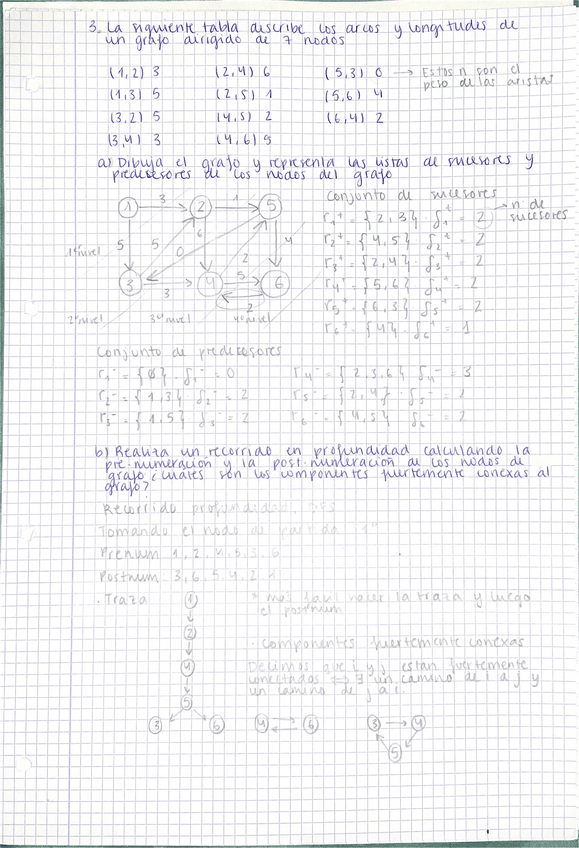 3. La siguiente tabla describe los arcos y longitudes de
un grafo dirigido de 7 nodos
(1,2) 3 (2,4) 6 (5,3) 0 → Estos n son el
peso de las aristas
(1,3) 5 (2,5) 1 (5,6) 4
(3,2) 5 (4,5) 2 (6,4) 2
(3,4) 3 (4,6) 5
a) Dibuja el grafo y representa las listas de sucesores y
predesesores de los nodos del grafo
Conjunto de sucesores
1 3 2 1 5
Γ1+ = {2,3} δ1+ = 2 → n de
sucesores
Γ2+ = {4,5} δ2+ = 2
5 5 6 0 4
1er nivel
Γ3+ = {2,4} δ3+ = 2
2
Γ4+ = {5,6} δ4+ = 2
3 3 4 5 6
Γ5+ = {6,3} δ5+ = 2
2
2º nivel 3er nivel 4º nivel
Γ6+ = {4} δ6+ = 1
Conjunto de predesesores
Γ1- = {Ø} δ1- = 0 Γ4- = {2,3,6} δ4- = 3
Γ2- = {1,3} δ2- = 2 Γ5- = {2,4} δ5- = 2
Γ3- = {1,5} δ3- = 2 Γ6- = {4,5} δ6- = 2
b) Realiza un recorrido en profundidad calculando la
pre-numeración y la post-numeración de los nodos de
grafo ¿cuales son los componentes fuertemente conexas al
grafo?
Recorrido profundidad, DFS
Tomando el nodo de partida "1"
Prenum 1, 2, 4, 5, 3, 6
Postnum 3, 6, 5, 4, 2, 1
· Traza 1 * mas facil hacer la traza y luego
el postnum
2
· Componentes fuertemente conexas
4 Decimos que i y j estan fuertemente
conectados ⟺ ∃ un camino de i a j y
un camino de j a i.
5
3 6 4 6 3 4
5